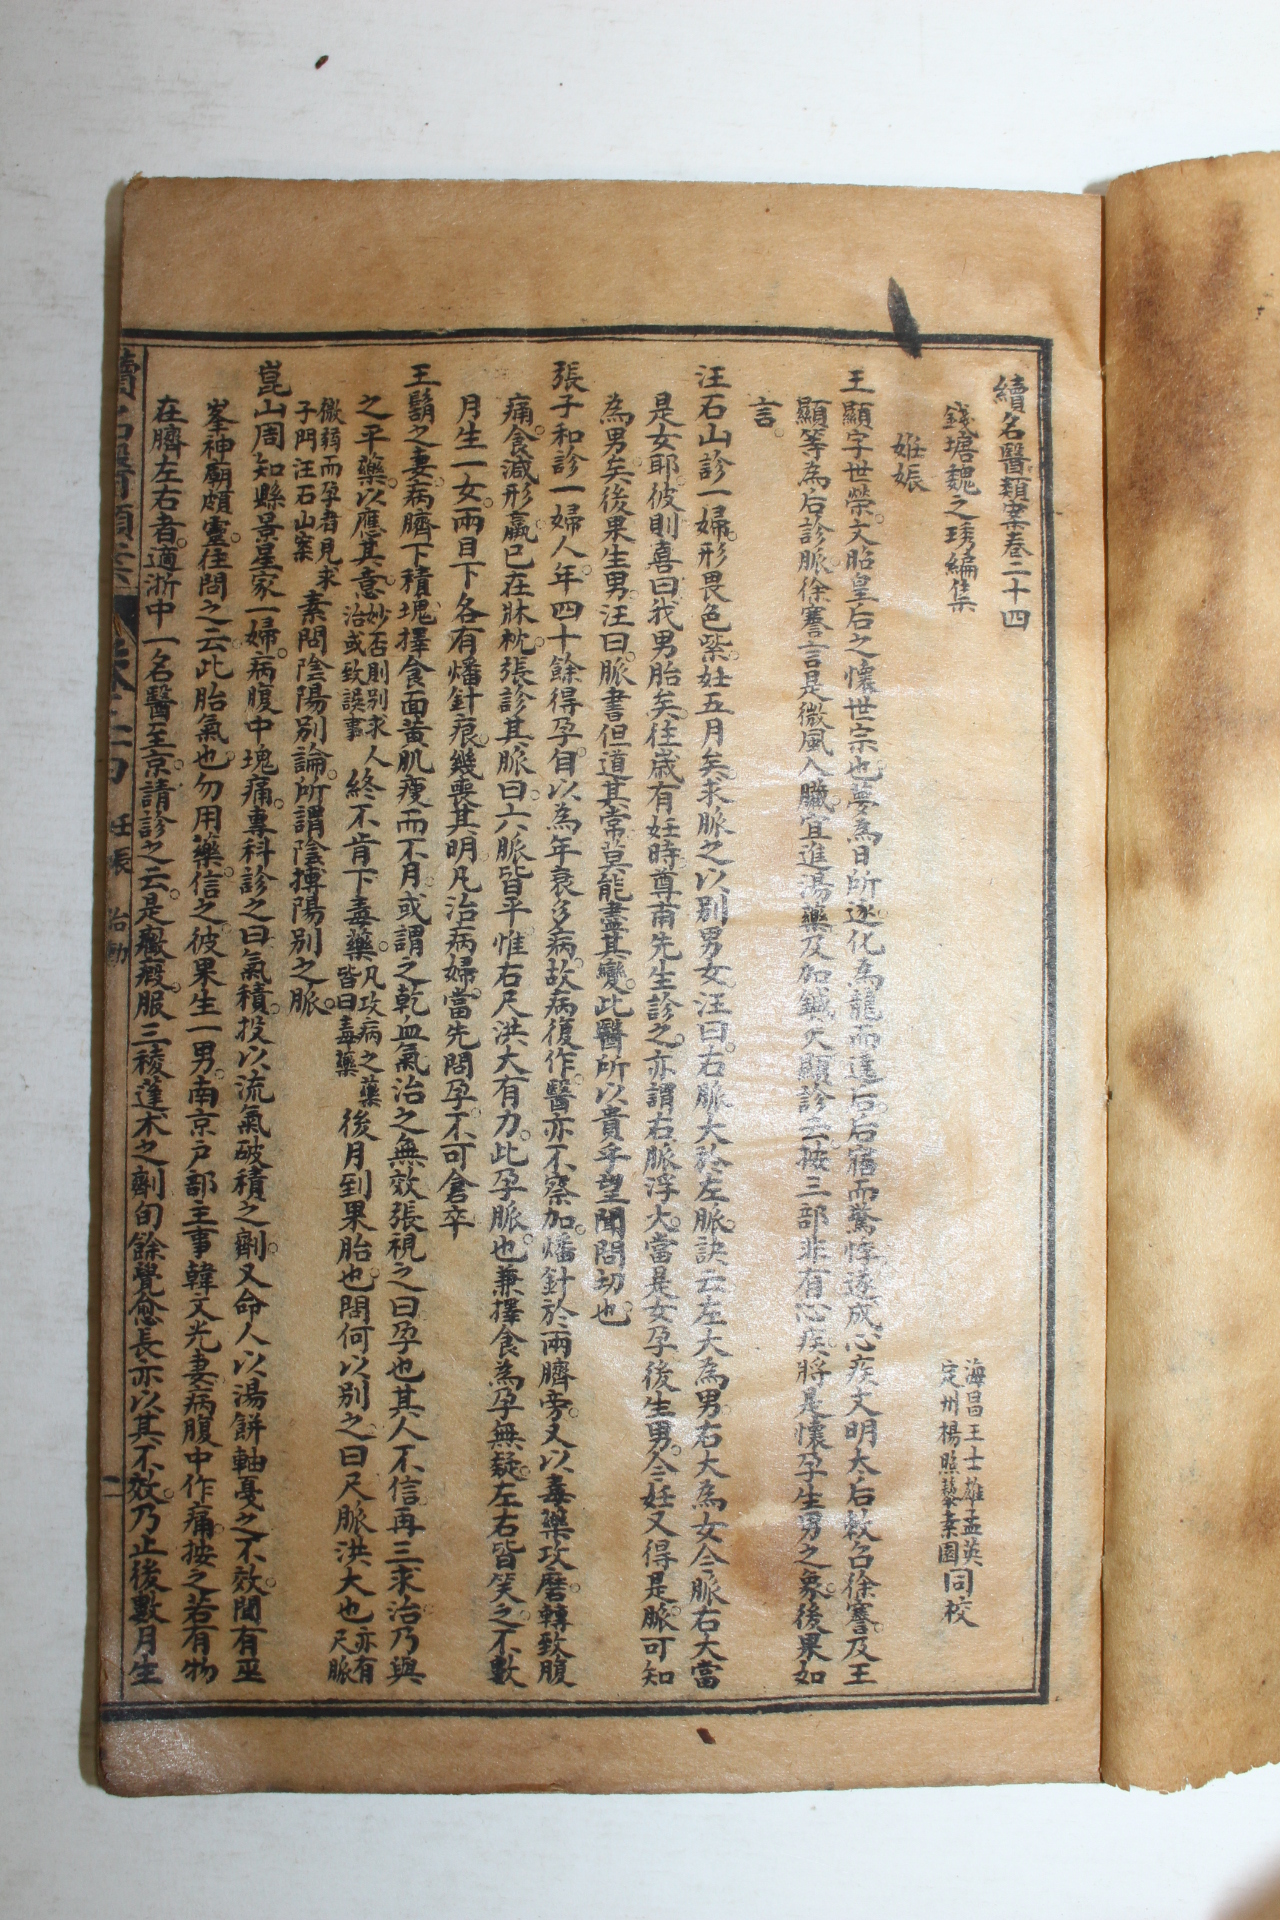 續名醫類案卷二十四
錢塘魏之琇編集
海昌王士雄孟英
定州楊照藜素園同校
姙娠
王顯字世榮文昭皇后之懷世宗也夢為日所逐化為龍而遶后后寤而驚悸遂成心疾文明太后敕召徐謇及王
顯等為后診脈徐謇言是微風入臟宜進湯藥及加鍼灸顯診云按三部非有心疾將是懷孕生男之象後果如
言
汪石山診一婦形畏色紫妊五月矣求脈之以別男女汪曰右脈大於左脈訣云左大為男右大為女今脈右大當
是女耶彼則喜曰我男胎矣往歲有妊時尊甫先生診之亦謂右脈浮大當是女孕後生男今妊又得是脈可知
為男矣後果生男汪曰脈書但道其常莫能盡其變此醫所以貴乎望聞問切也
張子和診一婦人年四十餘得孕自以為年衰多病故病復作醫亦不察加燔針於兩臍旁又以毒藥攻磨轉致腹
痛食減形羸已在牀枕張診其脈曰六脈皆平惟右尺洪大有力此孕脈也兼擇食為孕無疑左右皆笑之不數
月生一女兩目下各有燔針痕幾喪其明凡治病婦當先問孕不可倉卒
王鬍之妻病臍下積塊擇食面黃肌瘦而不月或謂之乾血氣治之無效張視之曰孕也其人不信再三求治乃與
之平藥以應其意妙否則別求人治或致誤事終不肯下毒藥凡攻病之藥皆曰毒藥後月到果胎也問何以別之曰尺脈洪大也亦有尺脈
微弱而孕者見求子門汪石山案素問陰陽別論所謂陰搏陽別之脈
崑山周知縣景星家一婦病腹中塊痛專科診之曰氣積投以流氣破積之劑又命人以湯餅軸憂之不效聞有巫
峯神廟頗靈往問之云此胎氣也勿用藥信之彼果生一男南京戶部主事韓文光妻病腹中作痛按之若有物
在臍左右者適浙中一名醫至京請診之云是癥瘕服三稜蓬朮之劑旬餘覺愈長亦以其不效乃止後數月生
續名醫類案 卷二十四 妊娠 胎動 一